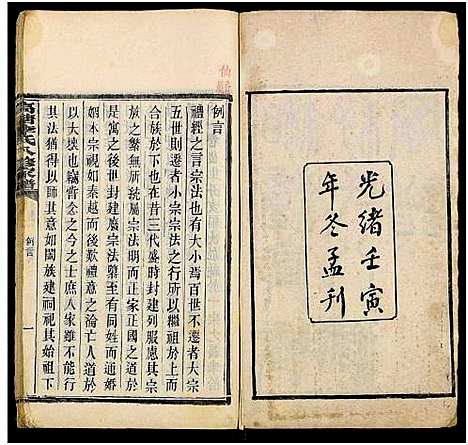 光緒壬寅
年冬孟刊
例言
禮經之言宗法也有大小焉百世不遷者大宗
五世則遷者小宗宗法之行所以繼祖於上而
合族於下也在昔三代盛時封建列服慮其宗
放於是有宗法明而正家正國之道於
是寓之後世封建廢宗法隳至於有同姓而通婚
姻本宗視如秦越而後歎禮意之淪亡人道於
以大壞也竊嘗思之今之士庶人家雖不能行
其法猶得以師其意如闔族建祠祀其始祖下
例言
一